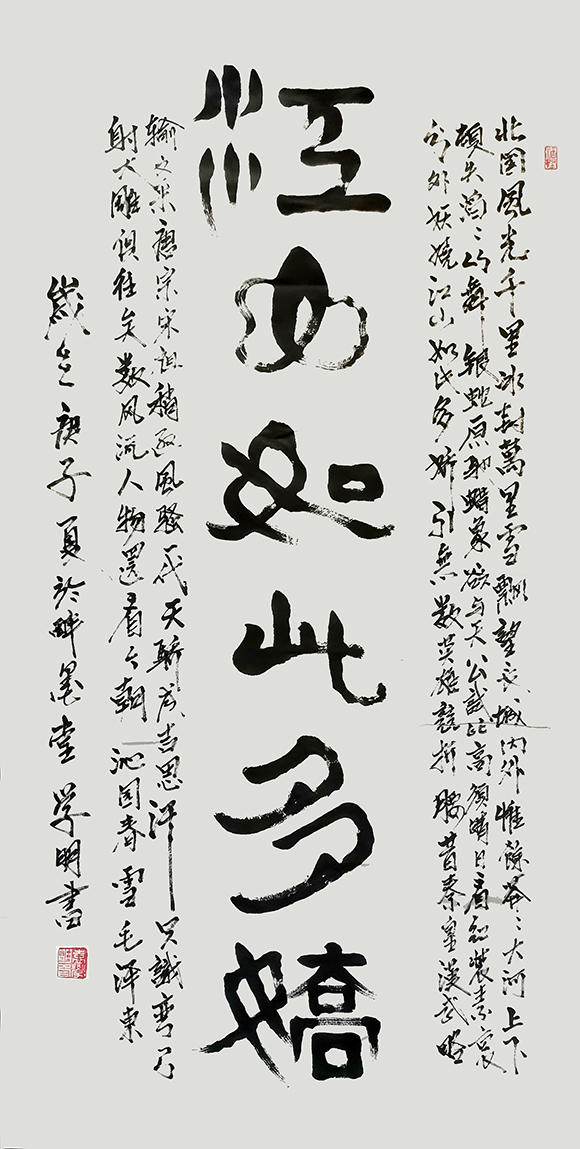 北国風光千里冰封萬里雪飄望長城内外惟餘莽ミ大河上下
頓失滔ミ山舞銀蛇原馳蜡象欲与天公試比高須晴日看红装素裹
分外妖嬈江山如此多娇引無数英雄競折腰昔秦皇漢武略
江山如此多嬌
輸文采唐宗宋祖稍逊風騷一代天驕成吉思汗只識彎弓
射大雕俱往矣数风流人物還看今朝沁园春雪毛泽東
歲在庚子夏於畔墨堂学明書